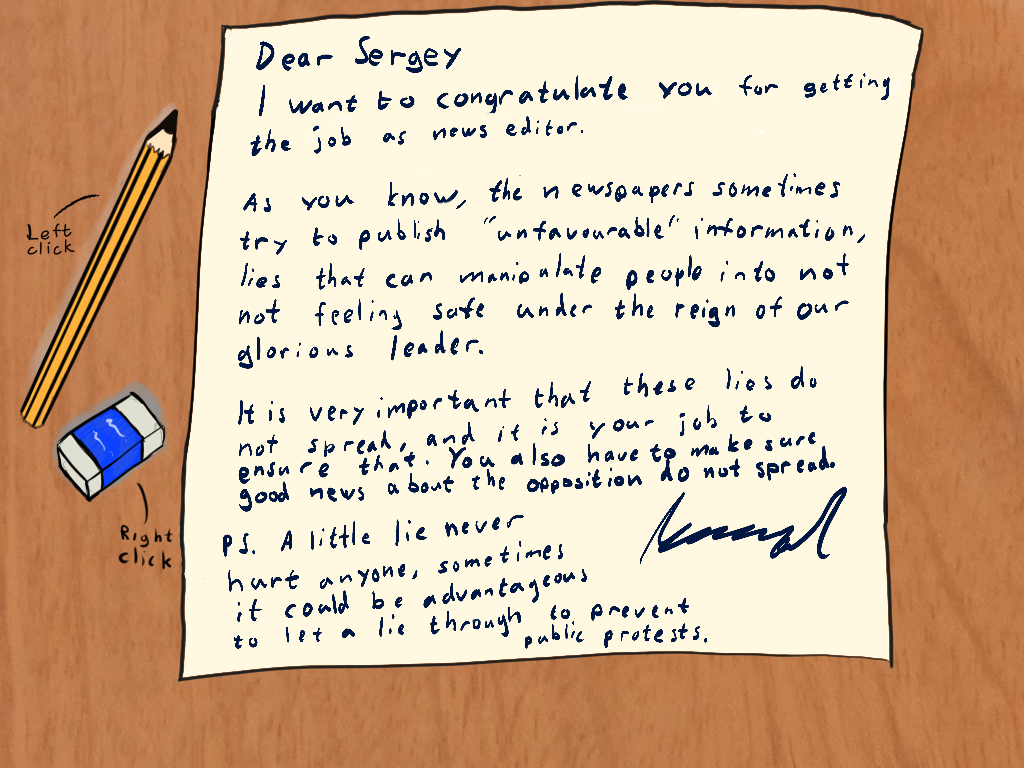 Dear Sergey
I want to congratulate you for getting
the job as news editor.
As you know, the newspapers sometimes
try to publish "unfavourable" information,
lies that can manipulate people into not
not feeling safe under the reign of our
glorious leader.
It is very important that these lies do
not spread, and it is your job to
ensure that. You also have to make sure
good news about the opposition do not spread.
PS. A little lie never
hurt anyone, sometimes
it could be advantageous
to let a lie through to prevent
public protests.
Left
click
Right
click